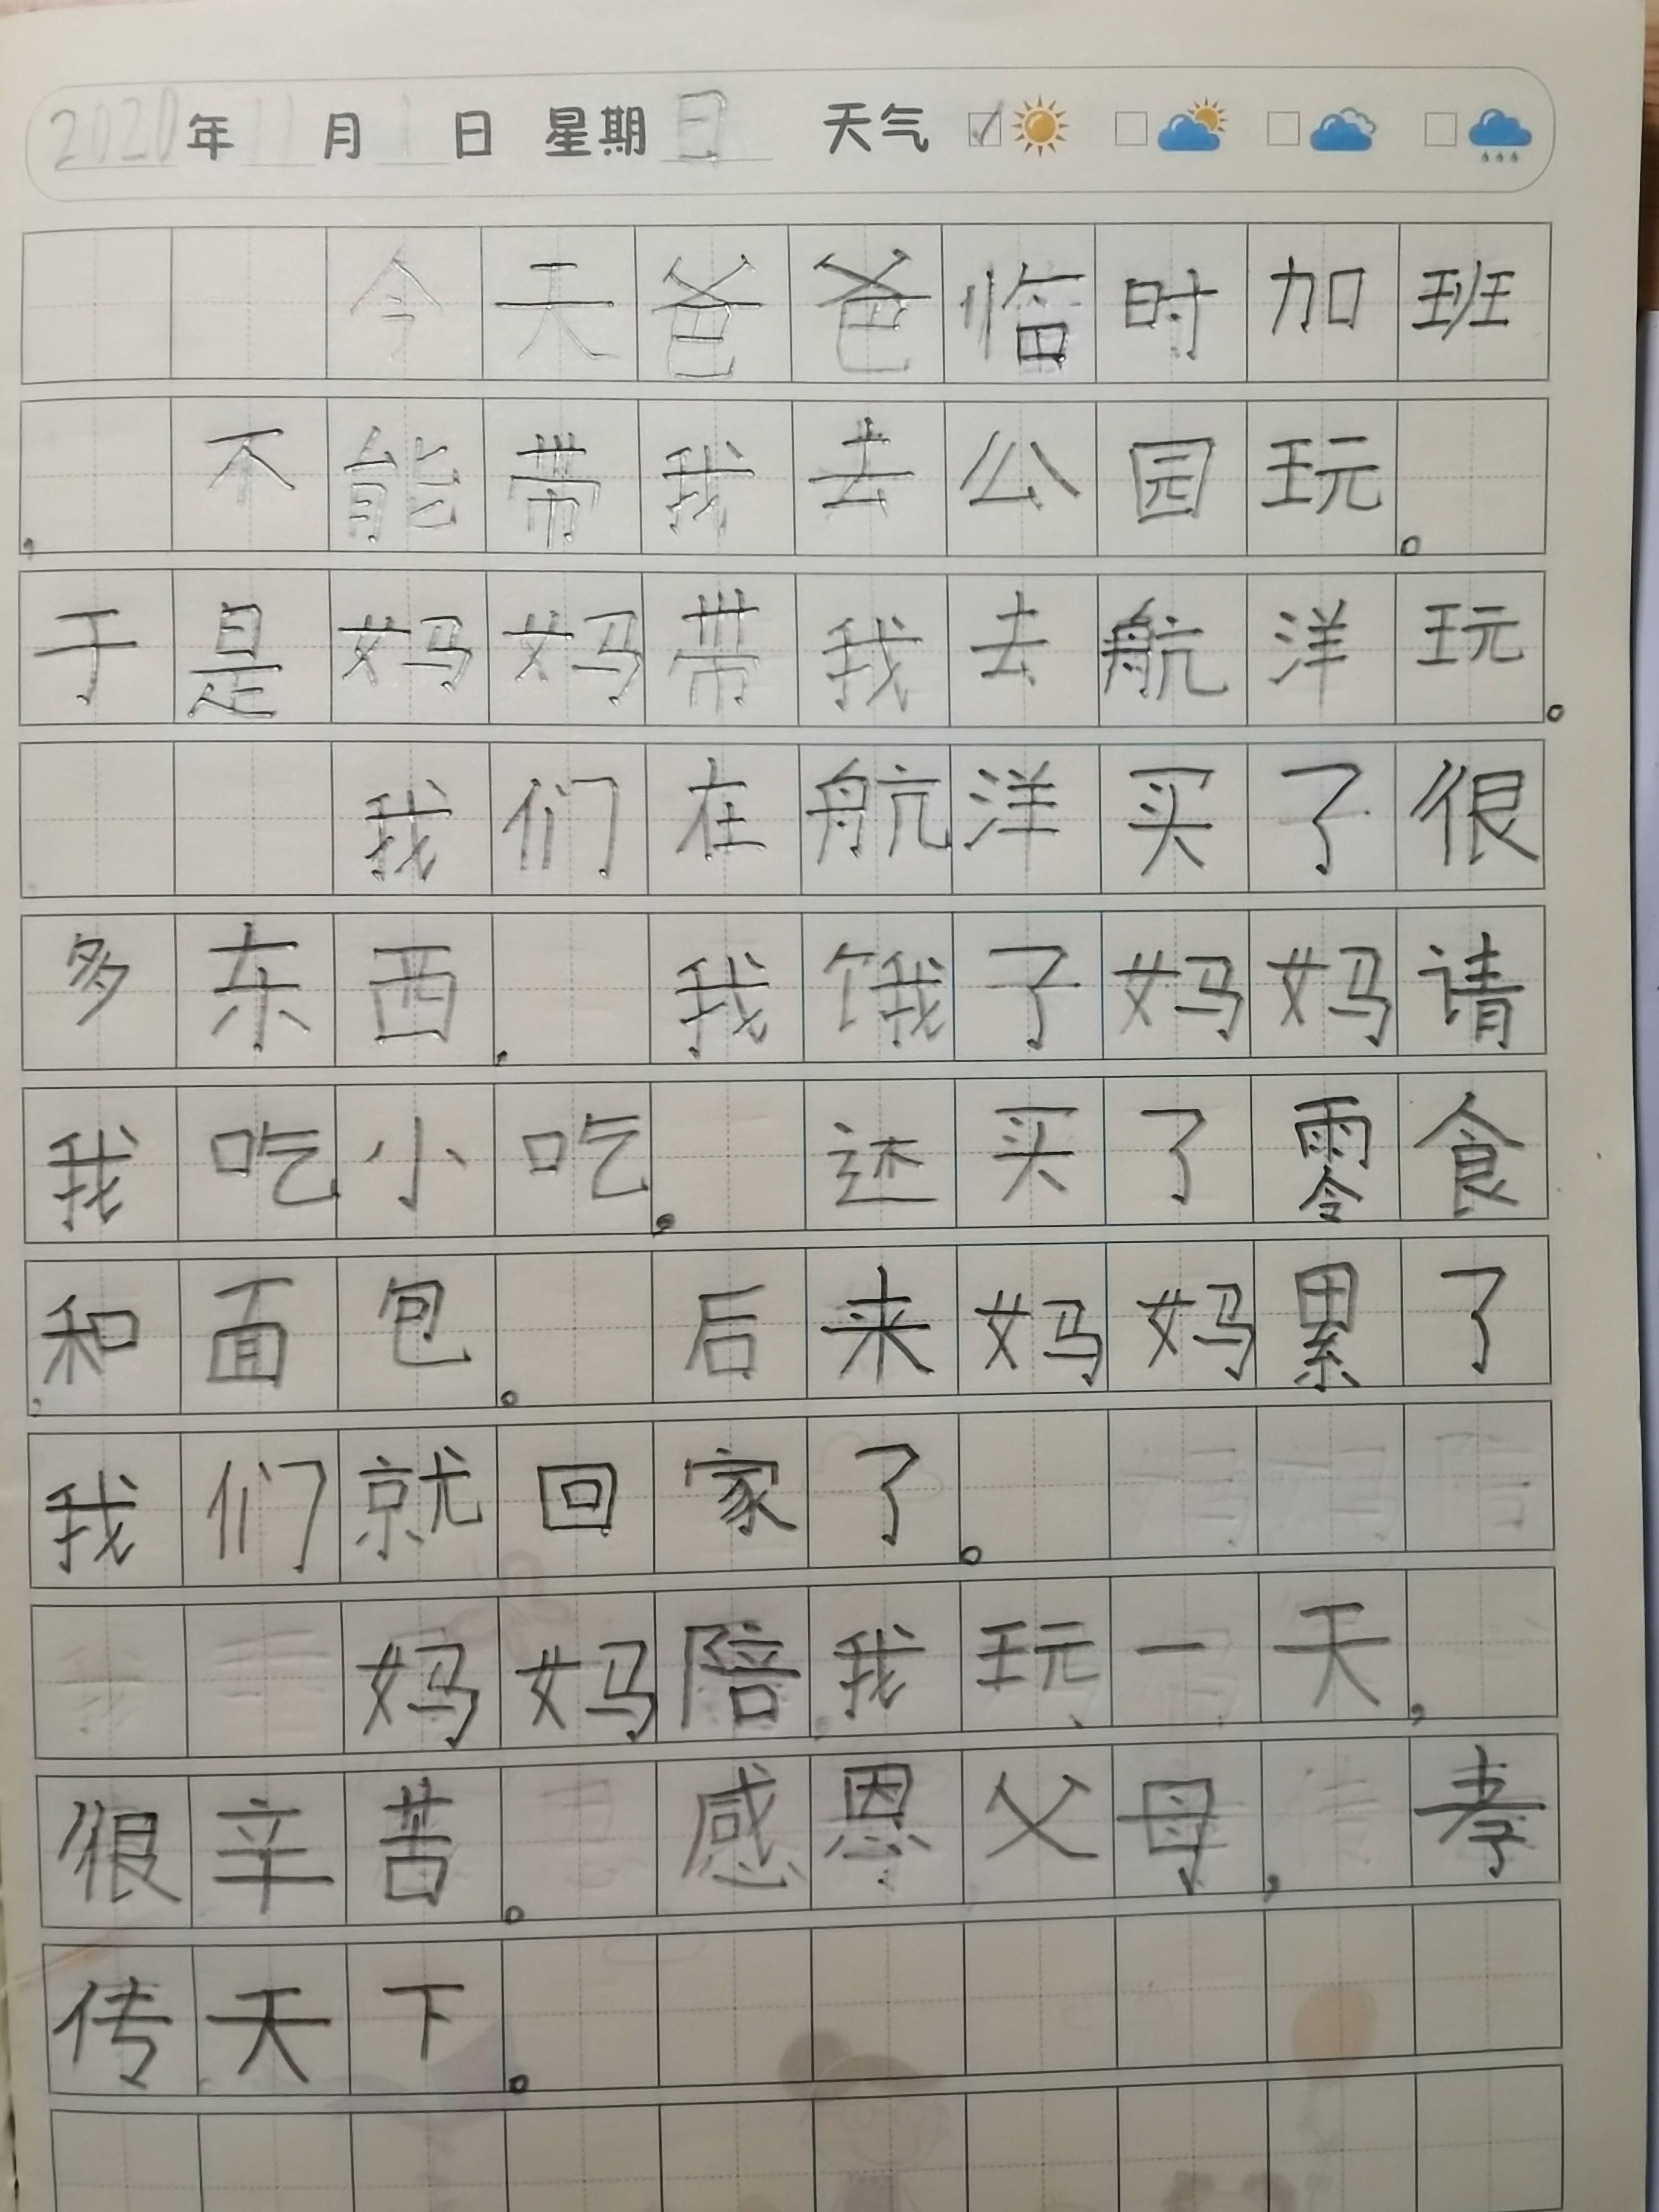 2020年11月1日 星期日 天气
今天爸爸临时加班
,不能带我去公园玩。
于是妈妈带我去航洋玩。
我们在航洋买了很
多东西.我饿了妈妈请
我吃小吃。还买了零食
和面包。后来妈妈累了
我们就回家了。
妈妈陪我玩一天,
很辛苦。感恩父母,孝
传天下。